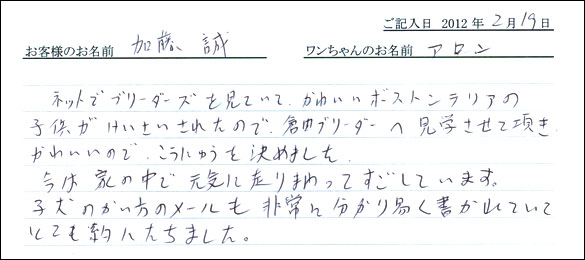 ご記入日 2012年2月19日
お客様のお名前 加藤 誠 ワンちゃんのお名前 アロン
ネットでブリーダーズを見ていて、かわいいボストンテリアの
子供がけいさいされたので、倉内ブリーダーへ見学させて頂き
かわいいので、こうにゅうを決めました。
今は家の中で元気に走りまわってすごしています。
子犬のかい方のメールも非常に分かり易く書かれていて
とても役にたちました。